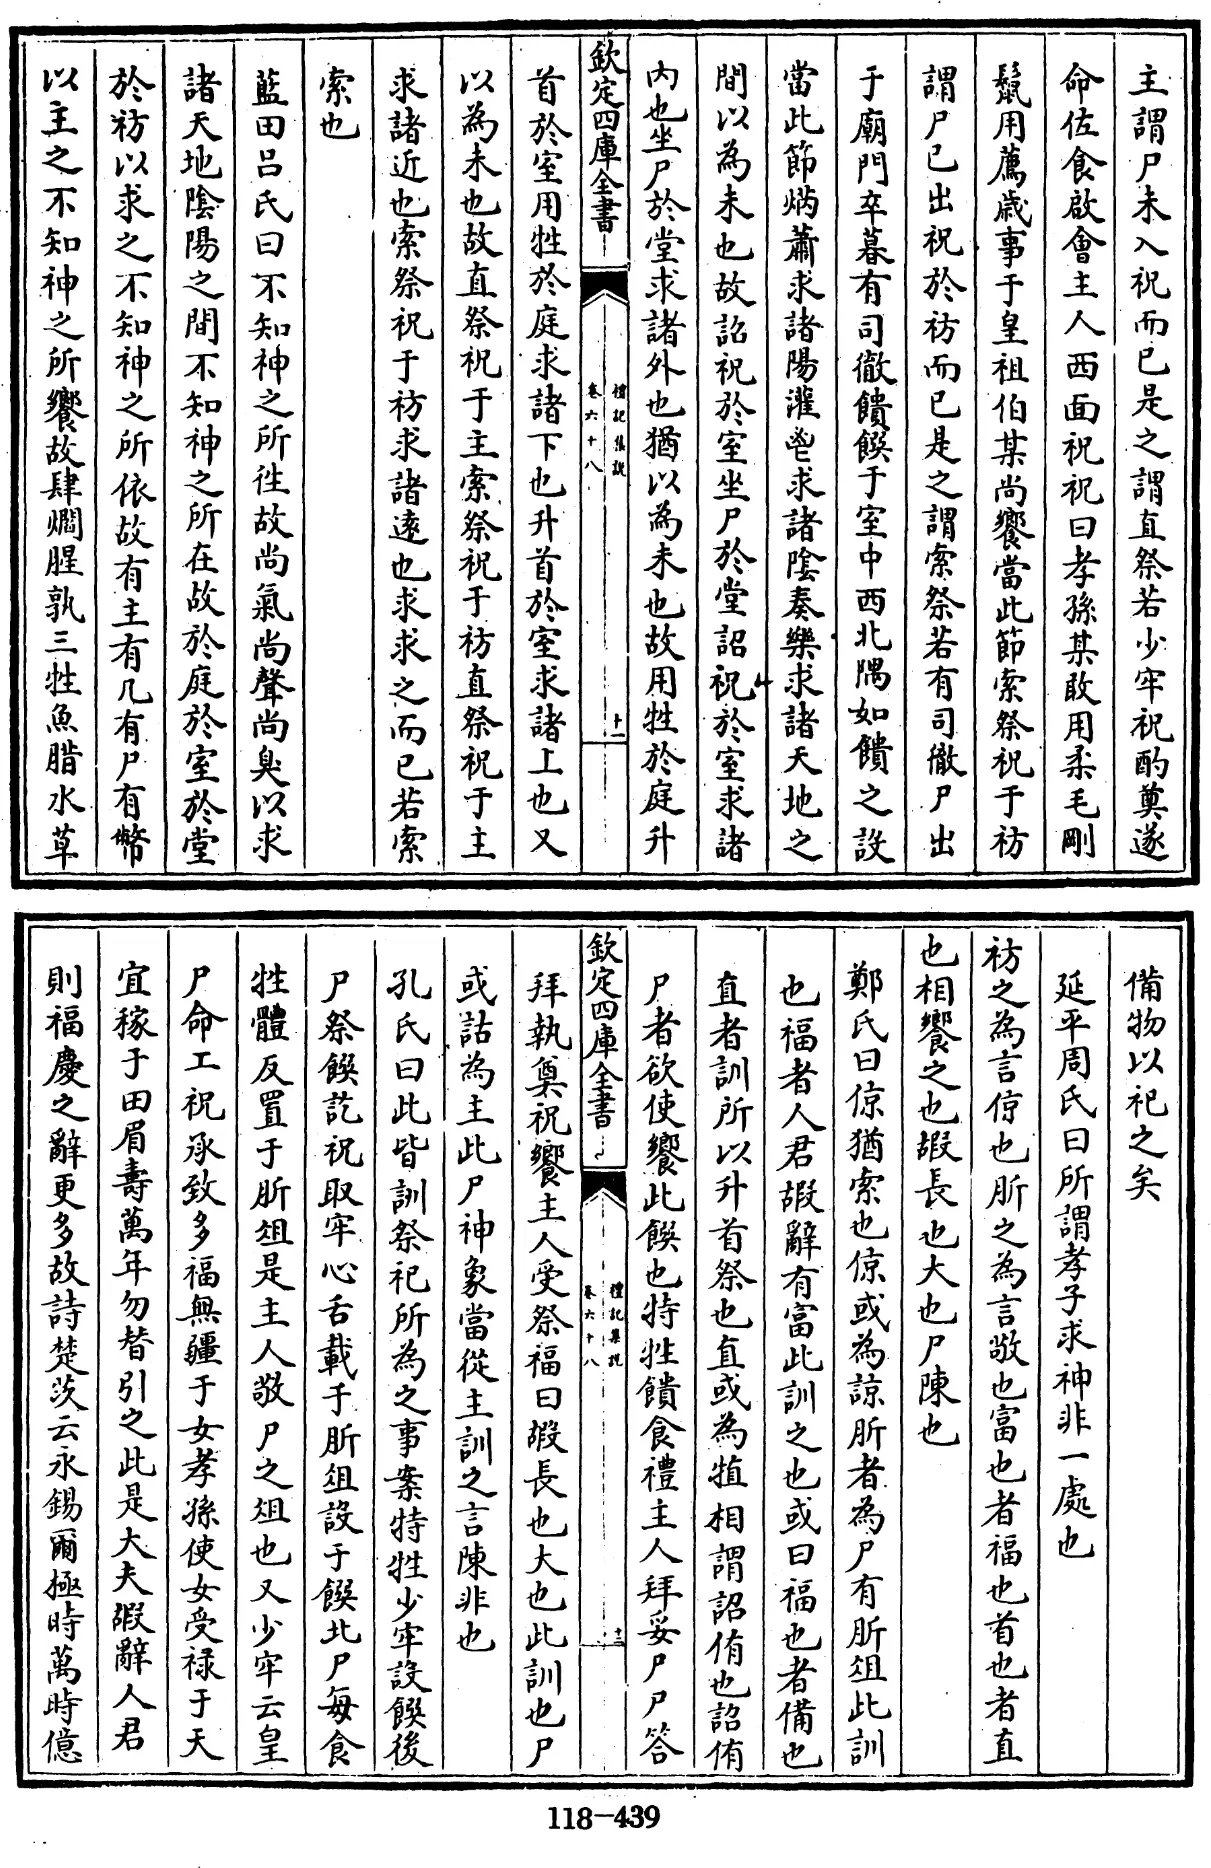 主謂尸未入祝而已是之謂直祭若少牢祝酌奠遂
命佐食啟會主人西面祝祝曰孝孫某敢用柔毛剛
鬛用薦歲事于皇祖伯某尚饗當此節索祭祝于祊
謂尸已出祝於祊而已是之謂索祭若有司徹尸出
于廟門卒暮有司徹饋饌于室中西北隅如饋之設
當此節焫蕭求諸陽灌鬯求諸陰奏樂求諸天地之
間以為未也故詔祝於室坐尸於堂詔祝於室求諸
内也坐尸於堂求諸外也猶以為未也故用牲於庭升
欽定四庫全書
禮記集說
卷六十八
十一
首於室用牲於庭求諸下也升首於室求諸上也又
以為未也故直祭祝于主索祭祝于祊直祭祝于主
求諸近也索祭祝于祊求諸逺也求求之而已若索
索也
藍田呂氏曰不知神之所徃故尚氣尚聲尚臭以求
諸天地陰陽之間不知神之所在故於庭於室於堂
於祊以求之不知神之所依故有主有几有尸有幣
以主之不知神之所饗故肆爓腥孰三牲魚腊水草
備物以祀之矣
延平周氏曰所謂孝子求神非一處也
祊之為言倞也肵之為言敬也富也者福也首也者直
也相饗之也嘏長也大也尸陳也
鄭氏曰倞猶索也倞或為諒肵者為尸有肵俎此訓
也福者人君嘏辭有富此訓之也或曰福也者備也
直者訓所以升首祭也直或為犆相謂詔侑也詔侑
尸者欲使饗此饌也特牲饋食禮主人拜妥尸尸答
欽定四庫全書
禮記集說
卷六十八
十二
拜執奠祝饗主人受祭福曰嘏長也大也此訓也尸
或詁為主此尸神象當從主訓之言陳非也
孔氏曰此皆訓祭祀所為之事案特牲少牢設饌後
尸祭饌訖祝取牢心舌載于肵俎設于饌北尸每食
牲體反置于肵俎是主人敬尸之俎也又少牢云皇
尸命工祝承致多福無疆于女孝孫使女受禄于天
宜稼于田眉壽萬年勿替引之此是大夫嘏辭人君
則福慶之辭更多故詩楚茨云永錫爾極時萬時億
118-439